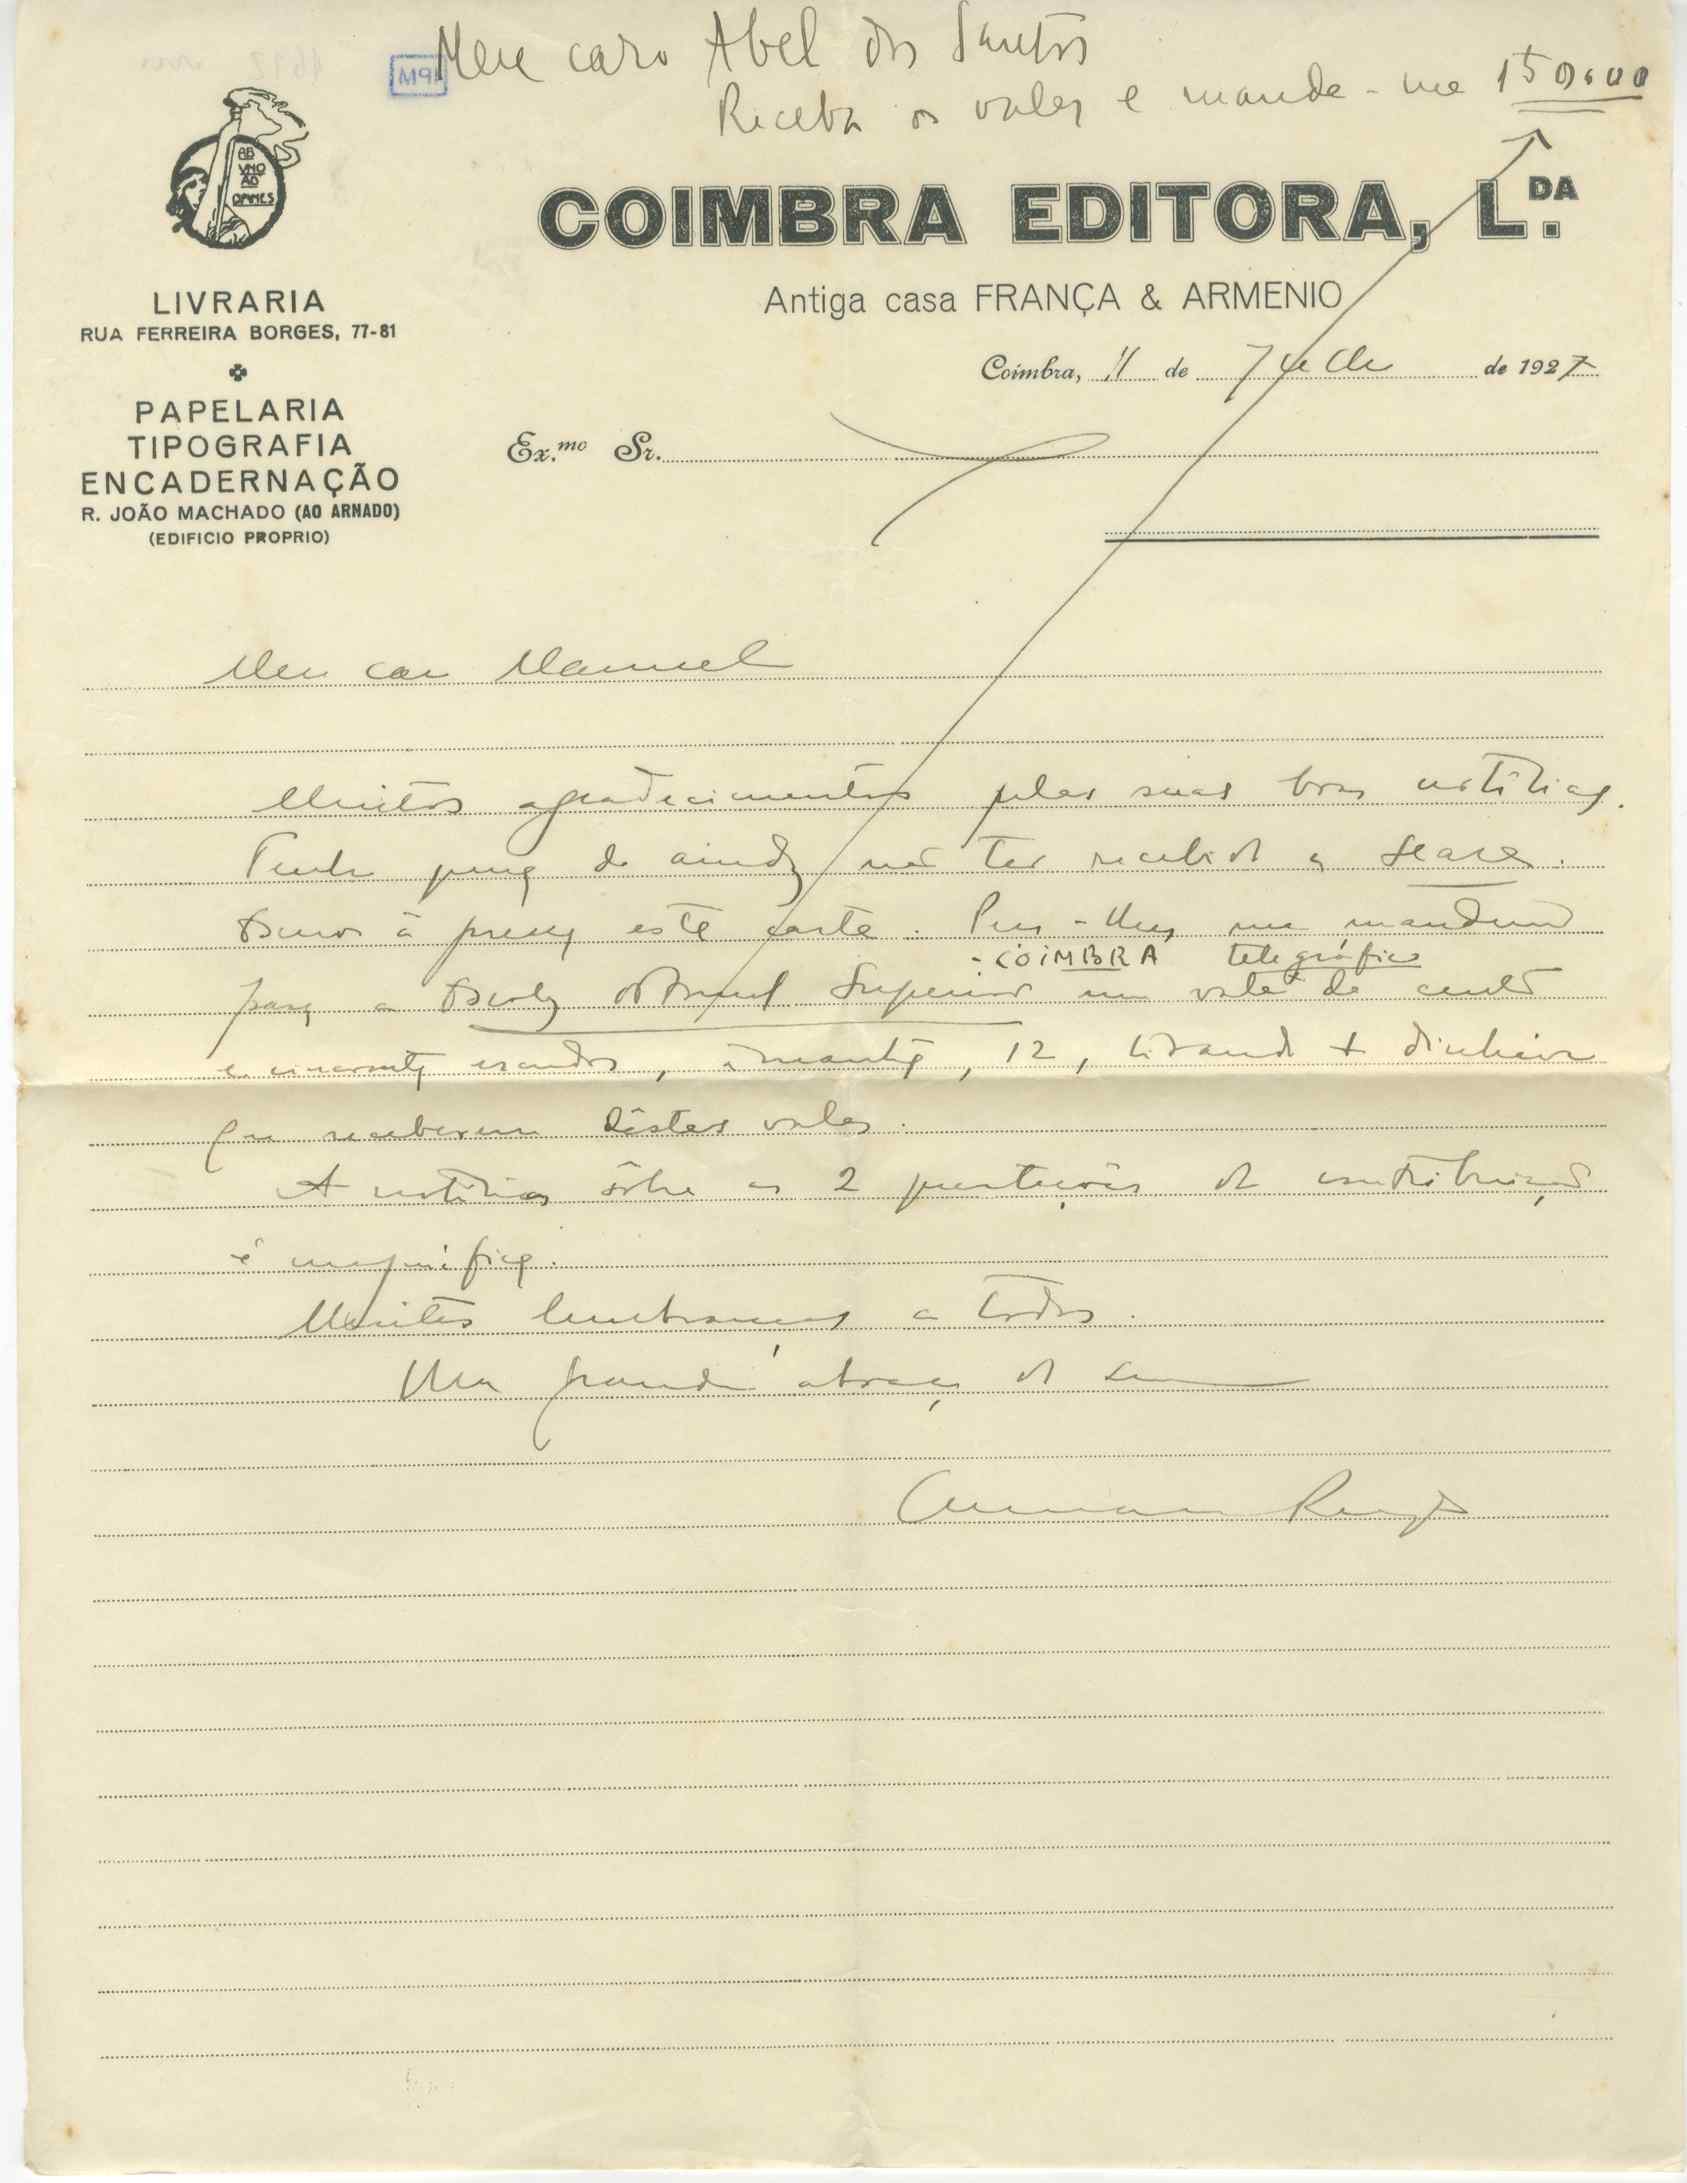 Meu caro Abel dos Santos
Receba os vales e mande-me 150$00
AB
VNO
AD
OMNES
COIMBRA EDITORA, L.DA
Antiga casa FRANÇA & ARMENIO
LIVRARIA
RUA FERREIRA BORGES, 77-81
PAPELARIA
TIPOGRAFIA
ENCADERNAÇÃO
R. JOÃO MACHADO (AO ARNADO)
(EDIFICIO PROPRIO)
Coimbra, 11 de de 1927
Ex.mo Sr.
Meu caro Manuel
Muitos agradecimentos pelas suas boas notícias.
Tenho pena de ainda não ter recebido a Seara.
Escrevo à pressa esta carta. Peço-lhes me mandem
-COIMBRA telegráfico
para a Escola Normal Superior um vale de cento
e cincoenta escudos, àmanhã, 12, tirando + dinheiro
que receberem dêstes vales.
A notícia sôbre as 2 prestações da contribuição
é magnífica.
Muitas lembranças a todos.
Um grande abraço do seu